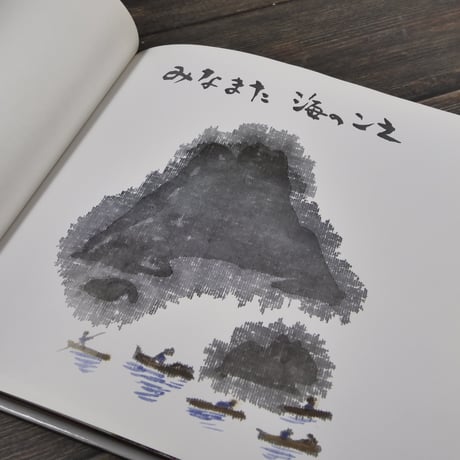 みなまた 海のこえ